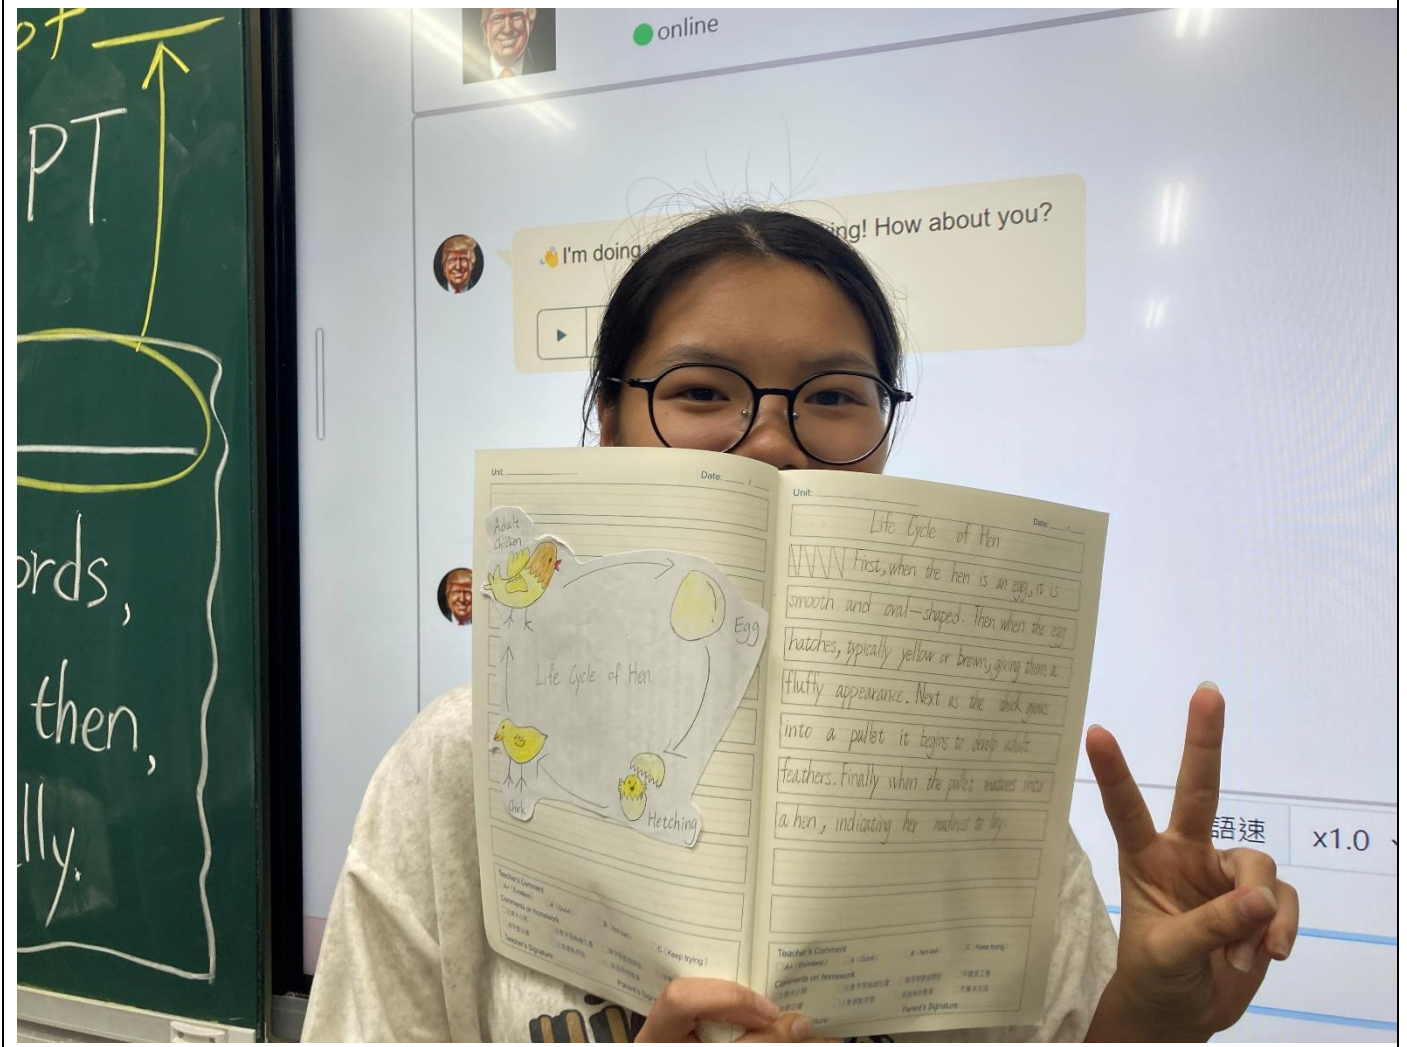 online
PT
I'm doing
ing! How about you?
ords,
then,
lly.
Unit:
Date: /
Adult
Chicken
Egg
Life Cycle of Hen
Chick
Hetching
Teacher's Comment
A+ ( Excellent )
A ( Good )
B ( Not bad )
C ( Keep trying )
Comments on homework
Teacher's Signature
Parent's Sig
Unit:
Date: /
Life Cycle of Hen
First, when the hen is an egg, it is
smooth and oval-shaped. Then when the egg
hatches, typically yellow or brown, giving them a
fluffy appearance. Next as the chick grows
into a pullet it begins to develop adult
feathers. Finally when the pullet matures into
a hen, indicating her readiness to lay
Teacher's Comment
A+ ( Excellent )
A ( Good )
B ( Not bad )
C ( Keep trying )
Comments on homework
Parent's Signature
語速
x1.0